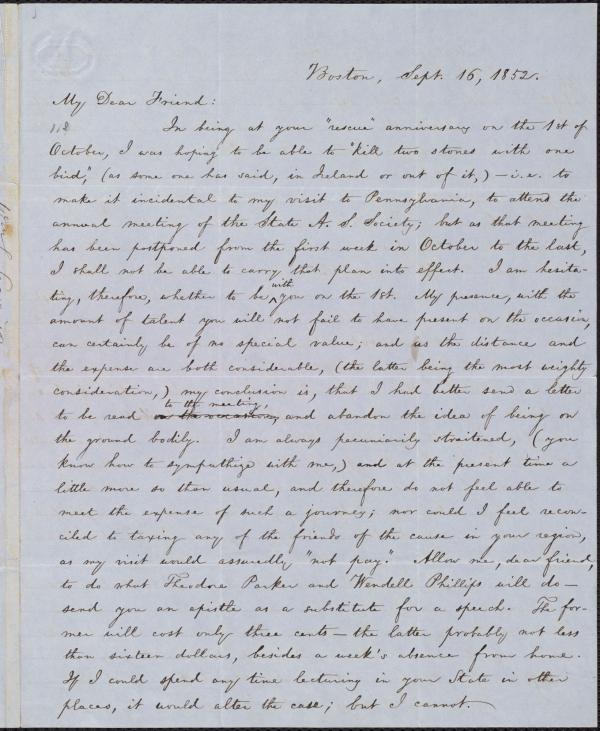 Boston, Sept. 16, 1852.
My Dear Friend:
In being at your "rescue" anniversary on the 1st of
October, I was hoping to be able to "kill two stones with one
bird," (as some one has said, in Ireland or out of it,) — i.e. to
make it incidental to my visit to Pennsylvania, to attend the
annual meeting of the State A. S. Society; but as that meeting
has been postponed from the first week in October to the last,
I shall not be able to carry that plan into effect. I am hesita-
ting, therefore, whether to be with you on the 1st. My presence, with the
amount of talent you will not fail to have present on the occasion,
can certainly be of no special value; and as the distance and
the expense are both considerable, (the latter being the most weighty
consideration,) my conclusion is, that I had better send a letter
to the meeting,
to be read on the occasion, and abandon the idea of being on
the ground bodily. I am always pecuniarily straitened, (you
know how to sympathize with me,) and at the present time a
little more so than usual, and therefore do not feel able to
meet the expense of such a journey; nor could I feel recon-
ciled to taxing any of the friends of the cause in your region,
as my visit would assuredly "not pay." Allow me, dear friend,
to do what Theodore Parker and Wendell Phillips will do —
send you an epistle as a substitute for a speech. The for-
mer will cost only three cents — the latter probably not less
than sixteen dollars, besides a week's absence from home.
If I could spend any time lecturing in your State in other
places, it would alter the case; but I cannot.